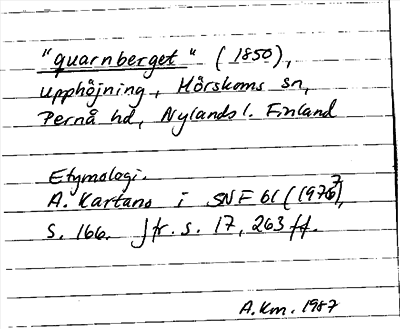 "quarnberget" (1850),
upphöjning, Mörskoms sn,
Pernå hd, Nylands l. Finland
Etymologi.
A. Kartano i SNF 61 (1976),
s. 166. Jfr. s. 17, 263 ff.
A.Km. 1987